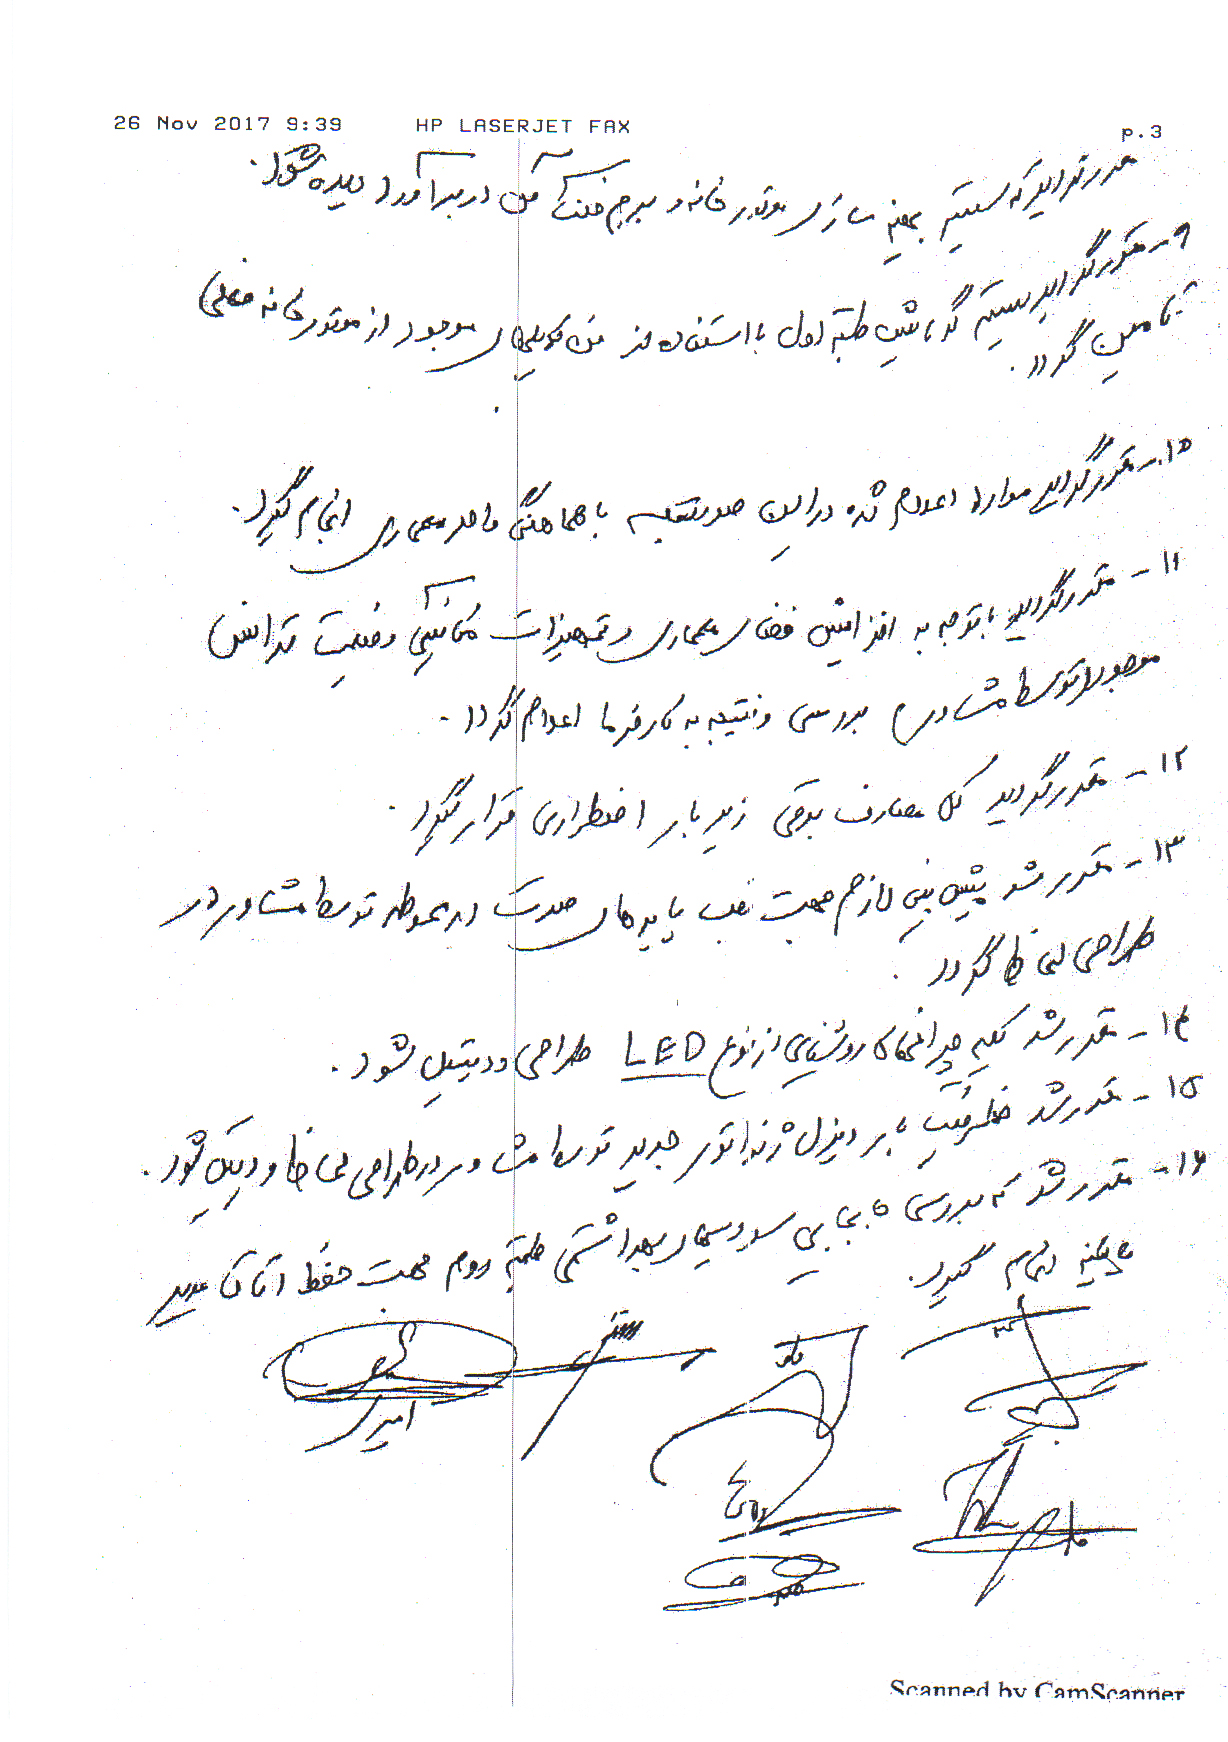 26 Nov 2017 9:39 HP LASERJET FAX p.3
مقرر گردید که سیستم بهینه سازی موتورخانه و برج خنک کن در برآورد دیده شود.
۹- مقرر گردید سیستم گرمایش طبقه اول با استفاده از فن کویلهای موجود از موتورخانه فعلی
تامین گردد.
۱۰- مقرر گردید موارد اعلام شده در این صورتجلسه با هماهنگی واحد معماری انجام گیرد.
۱۱- مقرر گردید با توجه به افزایش فضای معماری و تجهیزات مکانیکی وضعیت ترانس
موجود توسط مشاور بررسی و نتیجه به کارفرما اعلام گردد.
۱۲- مقرر گردید کل مصارف برقی زیر بار اضطراری قرار گیرد.
۱۳- مقرر شد پیش بینی لازم جهت نصب پایه های صوت در محوطه توسط مشاور در
طراحی لحاظ گردد.
۱۴- مقرر شد کلیه چراغهای روشنایی از نوع LED طراحی و دیتیل شود.
۱۵- مقرر شد ظرفیت بار دیزل ژنراتور جدید توسط مشاور در طراحی لحاظ و دیتیل شود.
۱۶- مقرر شد که بررسی جابجایی سرویسهای بهداشتی طبقه دوم جهت حفظ اتاق مدیر
انجام گیرد.
امیری
Scanned by CamScanner